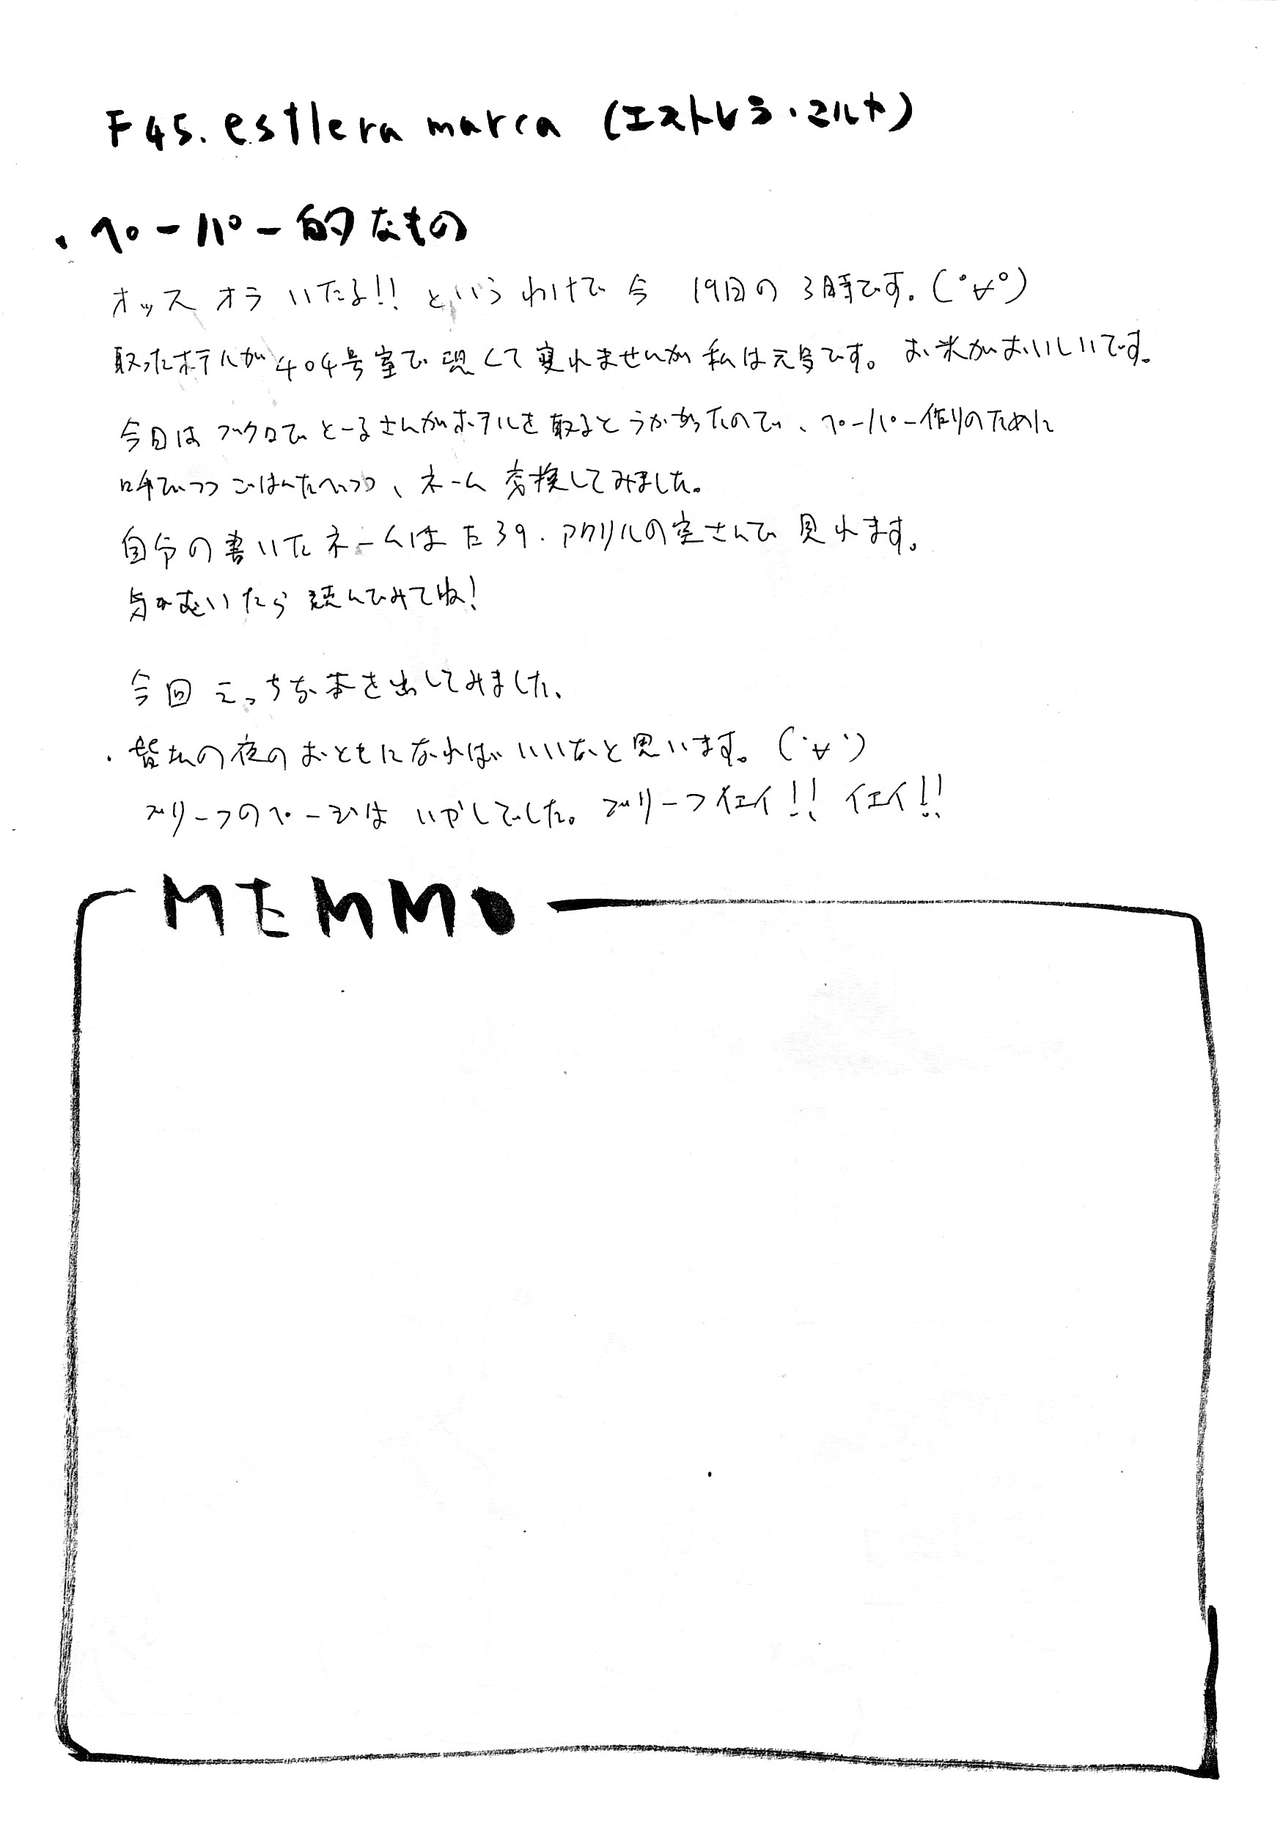 F45. estlera marca (エストレラ・マルカ)
・ペーパー的なもの
オッス オラ いたる!! というわけで 今 19日の 3時です。(゚∀゚)
取ったホテルが 404号室で 恐くて 寝れませんが 私は元気です。 お米がおいしいです。
今日は ブクロで とーるさんがホテルを 取るとうかがったので、ペーパー作りのために
呼びつつ ごはんたべつつ、ネーム 交換してみました。
自分の書いたネームは た39. アクリルの空さんで 見れます。
気がむいたら 読んでみてね!
今回 えっちな本を出してみました、
・皆さんの夜のおともになればいいなと思います。(˙∀˙)
ブリーフのページは いかしてました。ブリーフイエイ!! イエイ!!
MEMMO